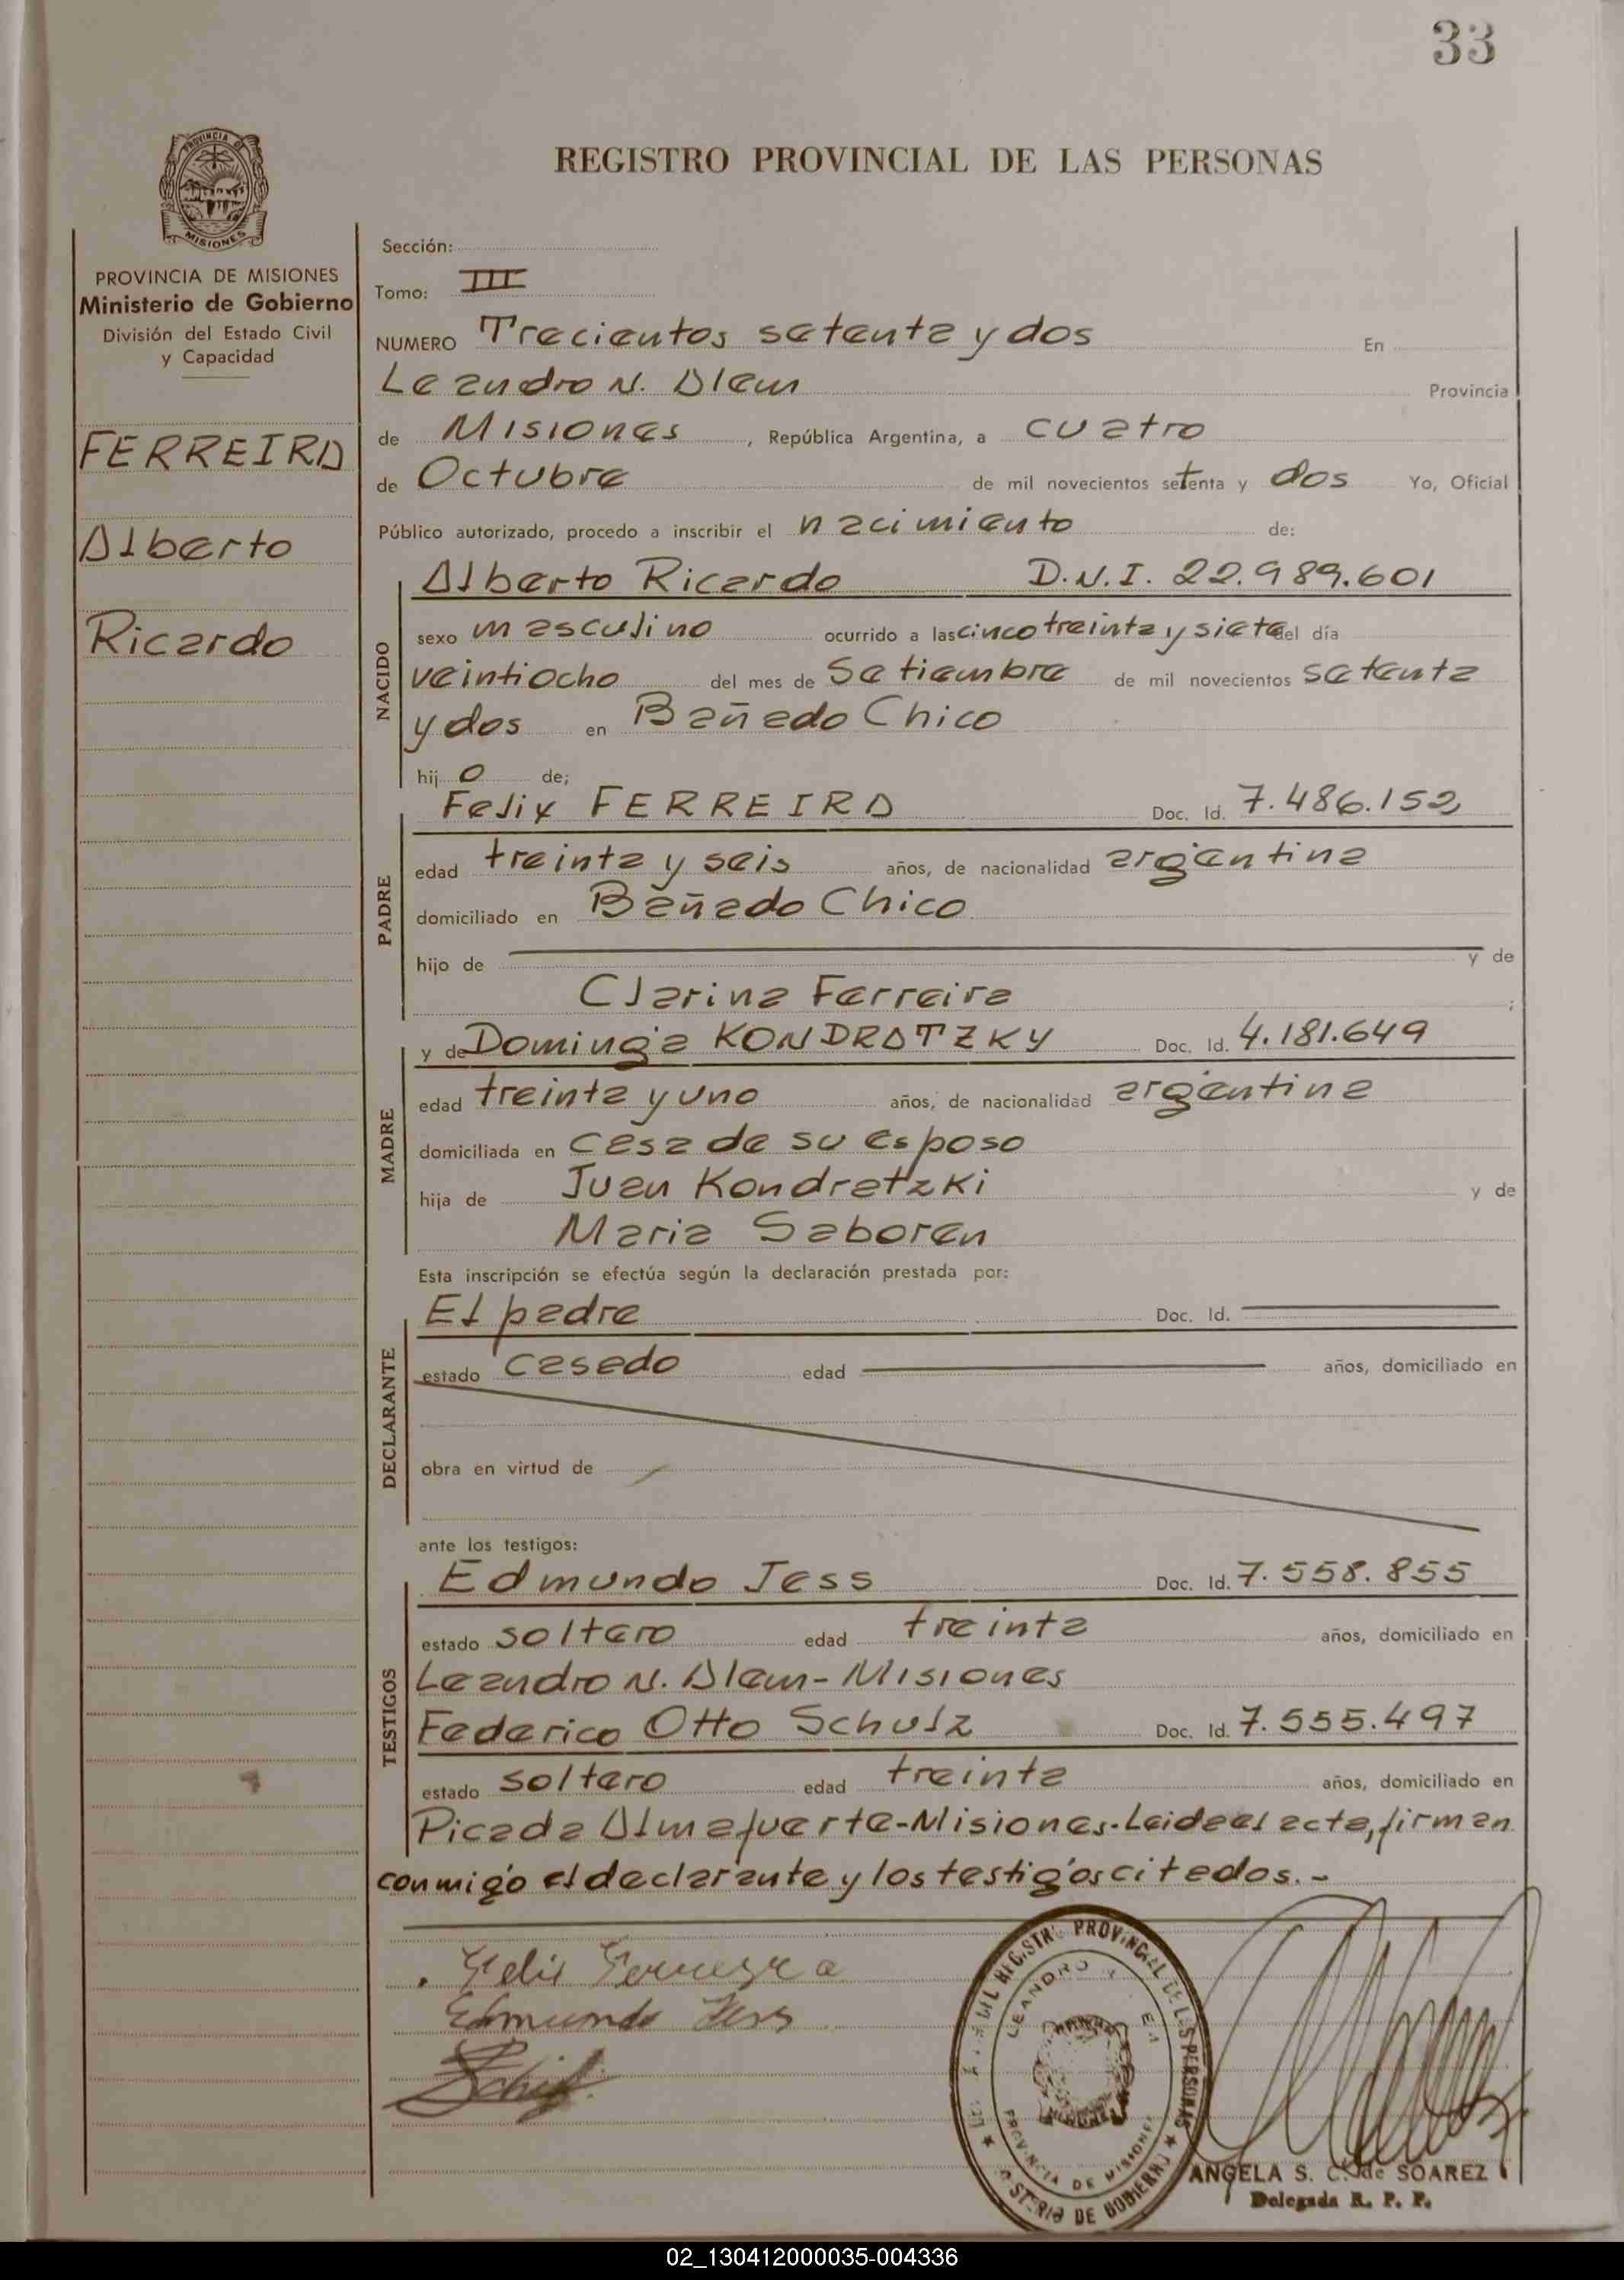 33
REGISTRO PROVINCIAL DE LAS PERSONAS
PROVINCIA DE MISIONES
PROVINCIA DE MISIONES
Ministerio de Gobierno
División del Estado Civil
y Capacidad
FERREIRA
Alberto
Ricardo
Sección:
Tomo: III
NUMERO Trecientos setenta y dos En
Leandro N. Alem Provincia
de Misiones, República Argentina, a cuatro
de Octubre de mil novecientos setenta y dos Yo, Oficial
Público autorizado, procedo a inscribir el nacimiento de:
NACIDO
Alberto Ricardo D.N.I. 22.989.601
sexo masculino ocurrido a las cinco treinta y siete del día
veintiocho del mes de Setiembre de mil novecientos setenta
y dos en Bañado Chico
hij o de;
PADRE
Felix FERREIRA Doc. Id. 7.486.152
edad treinta y seis años, de nacionalidad argentina
domiciliado en Bañado Chico
hijo de y de
Clarina Ferreira ;
MADRE
y de Dominga KONDRATZKY Doc. Id. 4.181.649
edad treinta y uno años, de nacionalidad argentina
domiciliada en casa de su esposo
hija de Juan Kondratzki y de
Maria Saboren
Esta inscripción se efectúa según la declaración prestada por:
DECLARANTE
El padre Doc. Id.
estado casado edad años, domiciliado en
obra en virtud de
ante los testigos:
TESTIGOS
Edmundo Jess Doc. Id. 7.558.855
estado soltero edad treinta años, domiciliado en
Leandro N. Alem - Misiones
Federico Otto Schulz Doc. Id. 7.555.497
estado soltero edad treinta años, domiciliado en
Picada Almafuerte-Misiones.-Leida el acta, firman
conmigo el declarante y los testigos citados.-
Felix Ferreyra
Edmundo Jess
PROVINCIAL DE LAS PERSONAS
LEANDRO
PROVINCIA DE MISIONES
DE GOBIERNO
ANGELA S. C. de SOAREZ
Delegada R. P. P.
02_130412000035-004336